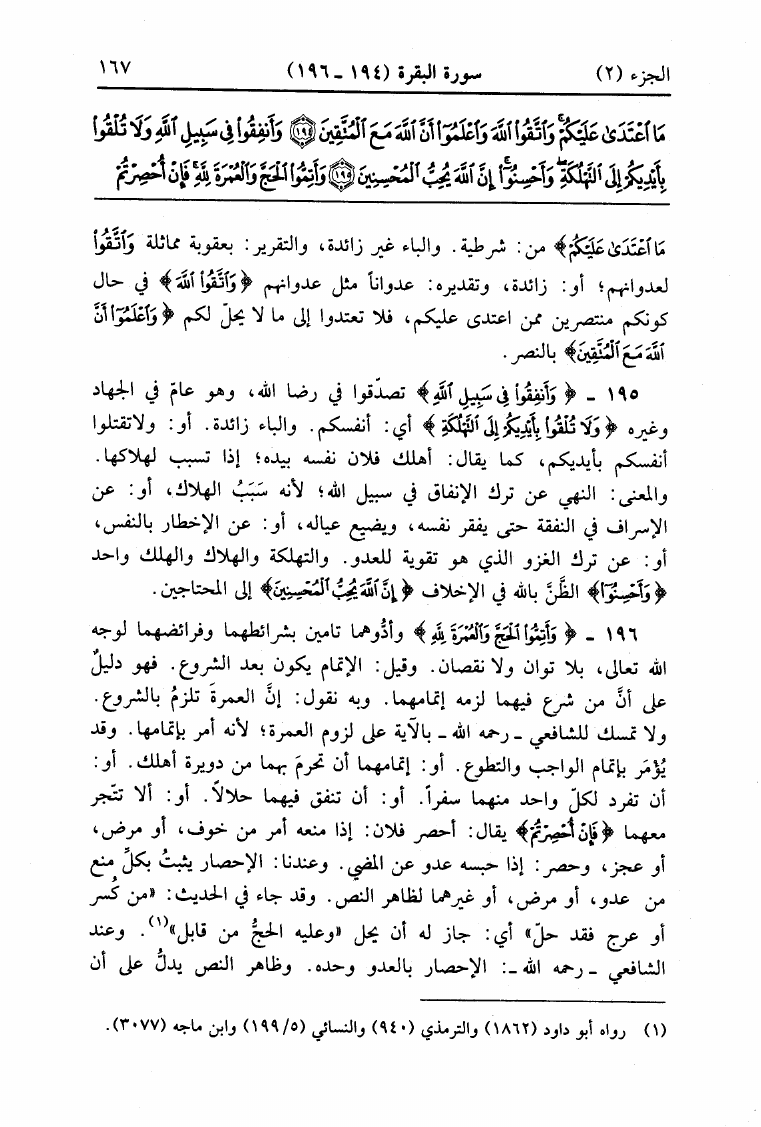 الجزء (٢) سورة البقرة (١٩٤ ـ ١٩٦) ١٦٧
مَا ٱعْتَدَىٰ عَلَيْكُمْۚ وَٱتَّقُوا۟ ٱللَّهَ وَٱعْلَمُوٓا۟ أَنَّ ٱللَّهَ مَعَ ٱلْمُتَّقِينَ ١٩٤ وَأَنفِقُوا۟ فِى سَبِيلِ ٱللَّهِ وَلَا تُلْقُوا۟
بِأَيْدِيكُمْ إِلَى ٱلتَّهْلُكَةِۛ وَأَحْسِنُوٓا۟ۚ إِنَّ ٱللَّهَ يُحِبُّ ٱلْمُحْسِنِينَ ١٩٥ وَأَتِمُّوا۟ ٱلْحَجَّ وَٱلْعُمْرَةَ لِلَّهِۚ فَإِنْ أُحْصِرْتُمْ
مَا ٱعْتَدَىٰ عَلَيْكُمْ﴾ من: شرطية. والباء غير زائدة، والتقرير: بعقوبة مماثلة وَٱتَّقُوا۟
لعدوانهم؛ أو: زائدة، وتقديره: عدواناً مثل عدوانهم ﴿وَٱتَّقُوا۟ ٱللَّهَ﴾ في حال
كونكم منتصرين ممن اعتدى عليكم، فلا تعتدوا إلى ما لا يحلّ لكم ﴿وَٱعْلَمُوٓا۟ أَنَّ
ٱللَّهَ مَعَ ٱلْمُتَّقِينَ﴾ بالنصر.
١٩٥ ـ ﴿وَأَنفِقُوا۟ فِى سَبِيلِ ٱللَّهِ﴾ تصدّقوا في رضا الله، وهو عامّ في الجهاد
وغيره ﴿وَلَا تُلْقُوا۟ بِأَيْدِيكُمْ إِلَى ٱلتَّهْلُكَةِ﴾ أي: أنفسكم. والباء زائدة. أو: ولاتقتلوا
أنفسكم بأيديكم، كما يقال: أهلك فلان نفسه بيده؛ إذا تسبب لهلاكها.
والمعنى: النهي عن ترك الإنفاق في سبيل الله؛ لأنه سَبَبُ الهلاك، أو: عن
الإسراف في النفقة حتى يفقر نفسه، ويضيع عياله، أو: عن الإخطار بالنفس،
أو: عن ترك الغزو الذي هو تقوية للعدو. والتهلكة والهلاك والهلك واحد
﴿وَأَحْسِنُوٓا۟﴾ الظَّنَّ بالله في الإخلاف ﴿إِنَّ ٱللَّهَ يُحِبُّ ٱلْمُحْسِنِينَ﴾ إلى المحتاجين.
١٩٦ ـ ﴿وَأَتِمُّوا۟ ٱلْحَجَّ وَٱلْعُمْرَةَ لِلَّهِ﴾ وأدُّوهما تامين بشرائطهما وفرائضهما لوجه
الله تعالى، بلا توان ولا نقصان. وقيل: الإتمام يكون بعد الشروع. فهو دليلٌ
على أنَّ من شرع فيهما لزمه إتمامهما. وبه نقول: إنَّ العمرةَ تلزمُ بالشروع.
ولا تمسك للشافعي ـ رحمه الله ـ بالآية على لزوم العمرة؛ لأنه أمر بإتمامها. وقد
يُؤْمَر بإتمام الواجب والتطوع. أو: إتمامهما أن تحرمَ بهما من دويرة أهلك. أو:
أن تفرد لكلّ واحد منهما سفراً. أو: أن تنفق فيهما حلالاً. أو: ألا تتّجر
معهما ﴿فَإِنْ أُحْصِرْتُمْ﴾ يقال: أحصر فلان: إذا منعه أمر من خوف، أو مرض،
أو عجز، وحصر: إذا حبسه عدو عن المضي. وعندنا: الإحصار يثبتُ بكلِّ منع
من عدو، أو مرض، أو غيرهما لظاهر النص. وقد جاء في الحديث: «من كُسر
أو عرج فقد حلّ» أي: جاز له أن يحل «وعليه الحجُّ من قابل»(١). وعند
الشافعي ـ رحمه الله ـ: الإحصار بالعدو وحده. وظاهر النص يدلُّ على أن
(١) رواه أبو داود (١٨٦٢) والترمذي (٩٤٠) والنسائي (١٩٩/٥) وابن ماجه (٣٠٧٧).